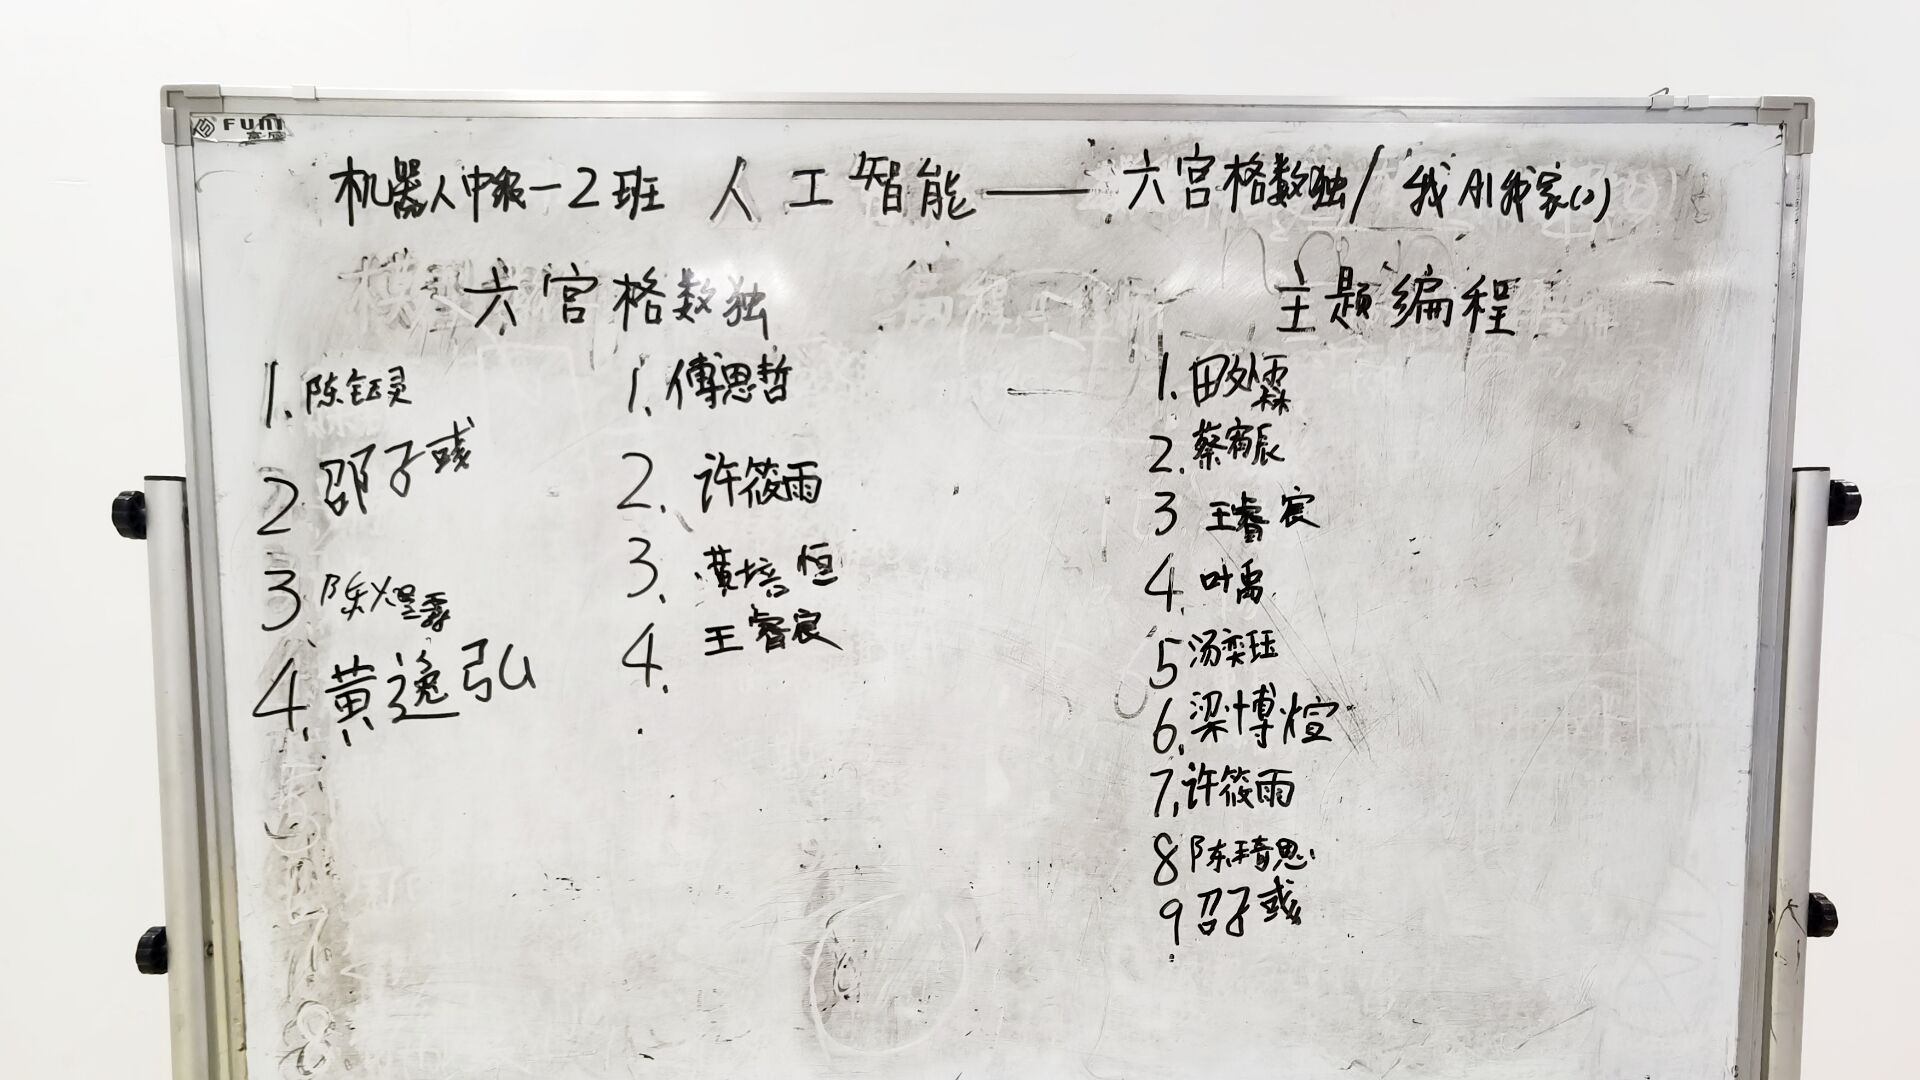 FUM
机器人中级-2班 人工智能——六宫格数独/我小我家(2)
六宫格数独
1. 陈钰灵
2 邵子彧
3 陈煜霖
4. 黄逸弘
1. 傅思哲
2. 许筱雨
3. 黄培恒
4. 王睿宸
主题编程
1. 田如霖
2. 蔡宥辰
3 王睿宸
4. 叶禹
5 汤奕珏
6. 梁博煊
7. 许筱雨
8 陈琦思
9 召子彧